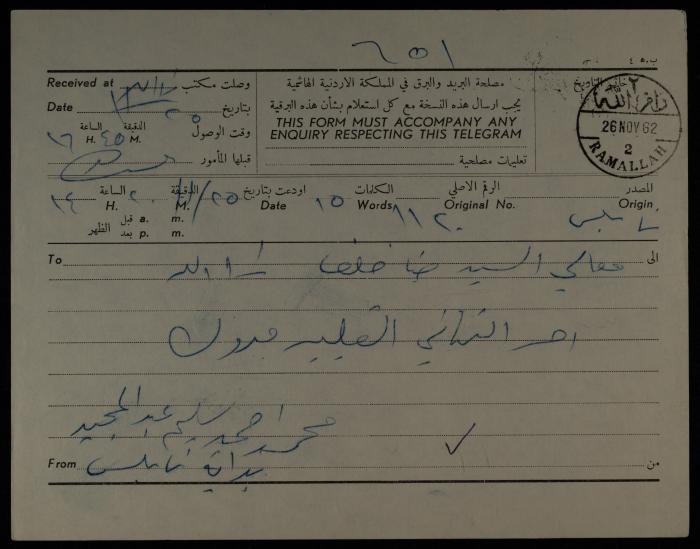 ٦٥١
ب. ه. ٤
Received at رام الله وصلت مكتب
مصلحة البريد والبرق في المملكة الاردنية الهاشمية
خاتم التاريخ
Date بتاريخ
يجب ارسال هذه النسخة مع كل استعلام بشأن هذه البرقية
THIS FORM MUST ACCOMPANY ANY
ENQUIRY RESPECTING THIS TELEGRAM
الساعة الدقيقة
١٦ H. ٤٥ M. وقت الوصول
قبلها المأمور
تعليمات مصلحية
رام الله
26 NOV 62
2
RAMALLAH
المصدر
Origin
نابلس
الرقم الاصلي
Original No.
١١٢٠
الكلمات
Words
١٥
اودعت بتاريخ
Date
٢٥/١١
الدقيقة
M.
٢٠
الساعة
H.
١٤
قبل a. m.
بعد p. m.
الظهر
To الى
معالي السيد خلف رام الله
احر التهاني القلبيه مبروك
محمد احمد سليم عبد المجيد
From بداية نابلس من